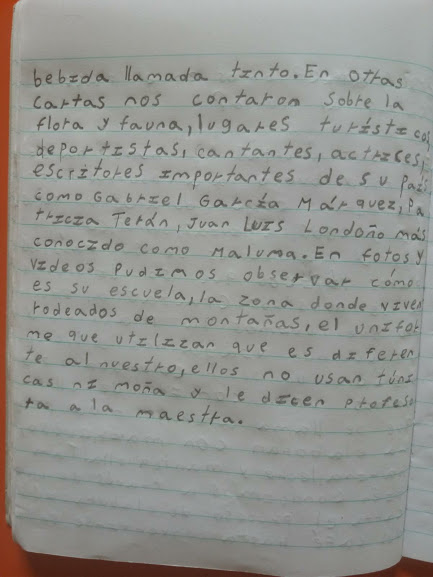 bebida llamada tinto. En otras
cartas nos contaron sobre la
flora y fauna, lugares turísticos,
deportistas, cantantes, actrices,
escritores importantes de su país
como Gabriel García Márquez, Pa
tricia Terán, Juan Luis Londoño más
conocido como Maluma. En fotos y
videos pudimos observar cómo
es su escuela, la zona donde viven
rodeados de montañas, el unifor
me que utilizan que es diferen
te al nuestro, ellos no usan túni
cas ni moña y le dicen profeso
ra a la maestra.